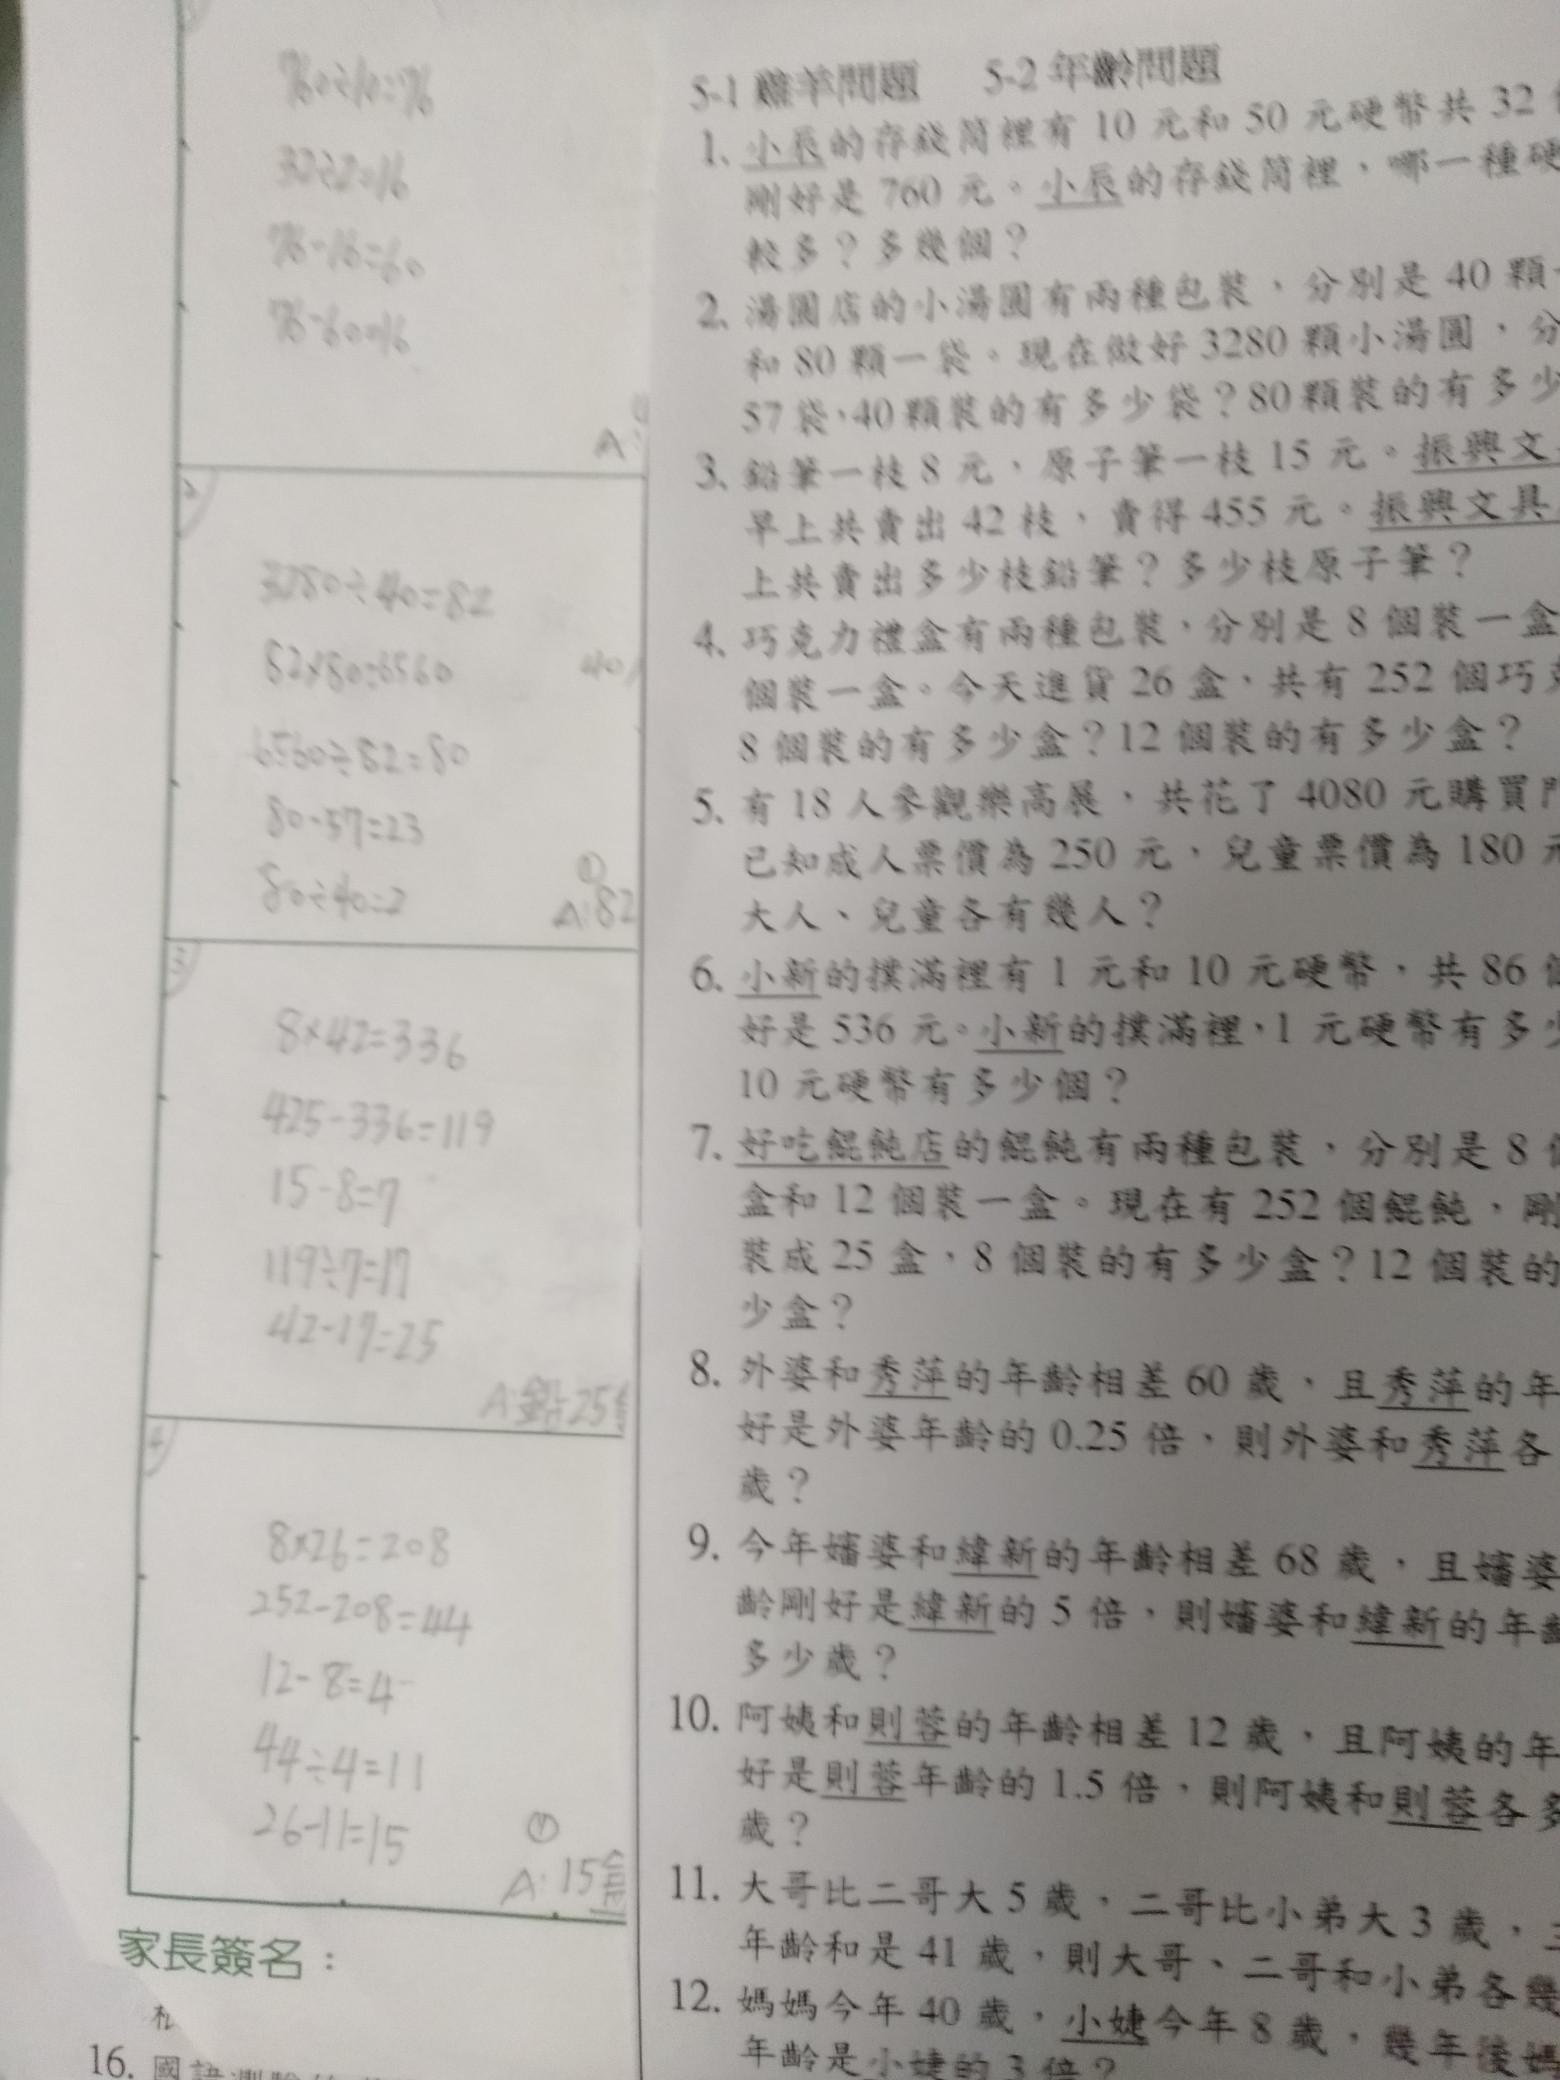 760÷10=76
32÷2=16
76-16=60
76-60=16
A:
2
3280÷40=82
82×80=6560
40
6560÷82=80
80-57=23
80÷40=2
①
A:82
3
8×42=336
425-336=119
15-8=7
119÷7=17
42-17=25
A:鉛25
4
8×26=208
252-208=44
12-8=4
44÷4=11
26-11=15
A:15盒
家長簽名：
16. 國語測驗
5-1 雞羊問題 5-2 年齡問題
1、小辰的存錢筒裡有 10 元和 50 元硬幣共 32
剛好是 760 元。小辰的存錢筒裡，哪一種硬
較多？多幾個？
2、湯圓店的小湯圓有兩種包裝，分別是 40 顆
和 80 顆一袋。現在做好 3280 顆小湯圓，分
57 袋，40 顆裝的有多少袋？80 顆裝的有多少
3、鉛筆一枝 8 元，原子筆一枝 15 元。振興文
早上共賣出 42 枝，賣得 455 元。振興文具
上共賣出多少枝鉛筆？多少枝原子筆？
4、巧克力禮盒有兩種包裝，分別是 8 個裝一盒
個裝一盒。今天進貨 26 盒，共有 252 個巧克
8 個裝的有多少盒？12 個裝的有多少盒？
5. 有 18 人參觀樂高展，共花了 4080 元購買門
已知成人票價為 250 元，兒童票價為 180 元
大人、兒童各有幾人？
6. 小新的撲滿裡有 1 元和 10 元硬幣，共 86 個
好是 536 元。小新的撲滿裡，1 元硬幣有多少
10 元硬幣有多少個？
7. 好吃餛飩店的餛飩有兩種包裝，分別是 8 個
盒和 12 個裝一盒。現在有 252 個餛飩，剛
裝成 25 盒，8 個裝的有多少盒？12 個裝的
少盒？
8. 外婆和秀萍的年齡相差 60 歲，且秀萍的年
好是外婆年齡的 0.25 倍，則外婆和秀萍各
歲？
9. 今年嬸婆和緯新的年齡相差 68 歲，且嬸婆
齡剛好是緯新的 5 倍，則嬸婆和緯新的年齡
多少歲？
10. 阿姨和則蓉的年齡相差 12 歲，且阿姨的年
好是則蓉年齡的 1.5 倍，則阿姨和則蓉各多
歲？
11. 大哥比二哥大 5 歲，二哥比小弟大 3 歲，三
年齡和是 41 歲，則大哥、二哥和小弟各幾
12. 媽媽今年 40 歲，小婕今年 8 歲，幾年後媽
年齡是小婕的 3 倍？